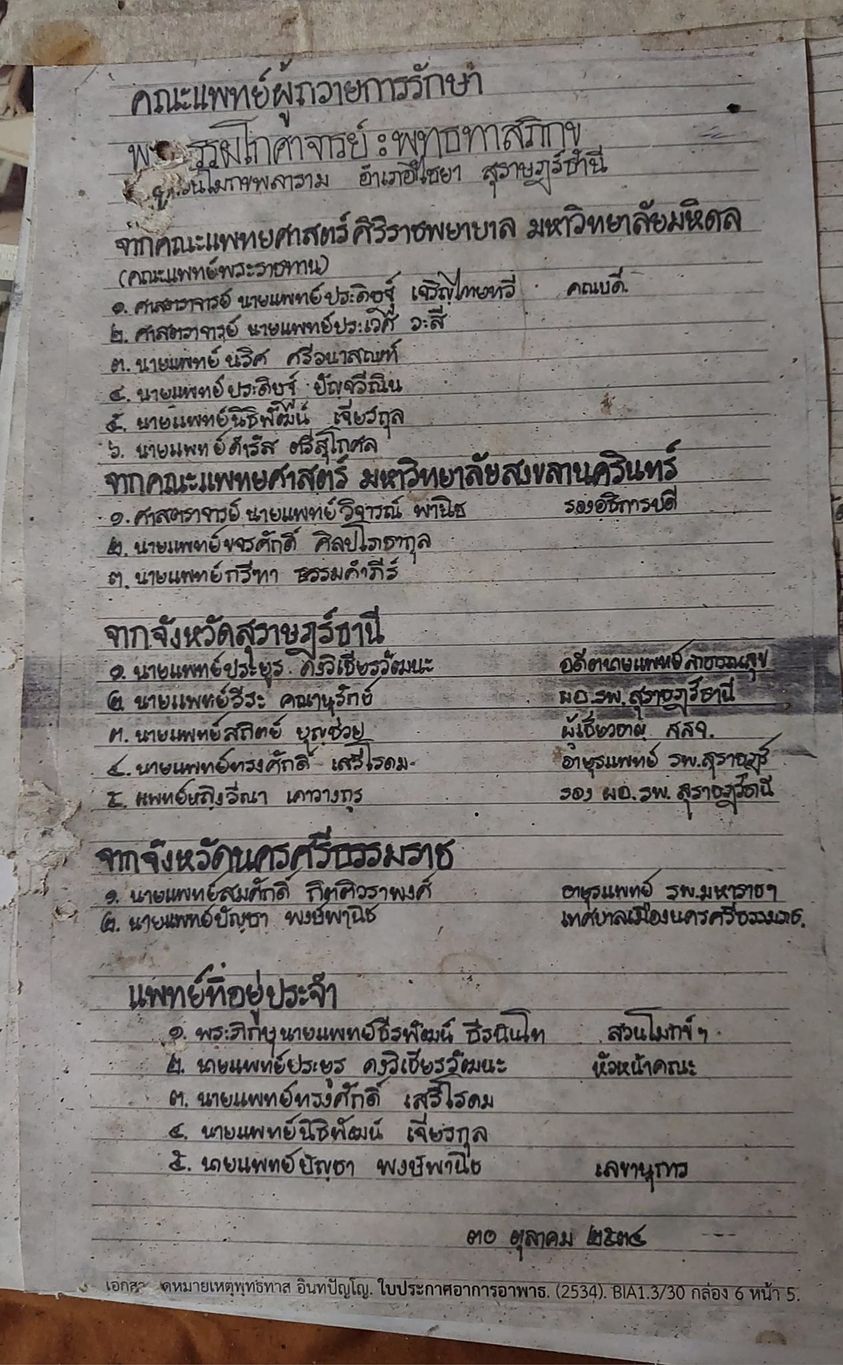 คณะแพทย์ผู้ถวายการรักษา
รรมโกศาจารย์ : พุทธทาสภิกขุ
โมกขพลาราม อำเภอไชยา สุราษฎร์ธานี
จากคณะแพทยศาสตร์ศิริราชพยาบาล มหาวิทยาลัยมหิดล
(คณะแพทย์พระราชทาน)
๑. ศาสตราจารย์ นายแพทย์ประดิษฐ์ เจริญไทยทวี คณบดี.
๒. ศาสตราจารย์ นายแพทย์ประเวศ วะสี
๓. นายแพทย์นริศ
๔. นายแพทย์ประดิษฐ์ ปัญจวีณิน
๕. นายแพทย์นิธิพัฒน์ เจียรกุล
๖. นายแพทย์ดำรัส ตรีสุโกศล
จากคณะแพทยศาสตร์ มหาวิทยาลัยสงขลานครินทร์
๑. ศาสตราจารย์ นายแพทย์วิจารณ์ พานิช รองอธิการบดี
๒. นายแพทย์ขจรศักดิ์ ศิลปโภชากุล
๓. นายแพทย์กรีฑา ธรรมคำภีร์
จากจังหวัดสุราษฎร์ธานี
๑. นายแพทย์ประยูร คงวิเชียรวัฒนะ อดีตนายแพทย์สาธารณสุข
๒. นายแพทย์วีระ คณานุรักษ์ ผอ.รพ.สุราษฎร์ธานี
๓. นายแพทย์สถิตย์ บุญช่วย ผู้เชี่ยวชาญ สสจ.
๔. นายแพทย์ทรงศักดิ์ เสรีโรดม. อายุรแพทย์ รพ.สุราษฎร์
๕. แพทย์หญิงวีณา เคาวางกูร รอง ผอ.รพ.สุราษฎร์ธานี
จากจังหวัดนครศรีธรรมราช
๑. นายแพทย์สมศักดิ์ กิตติวราพงศ์ อายุรแพทย์ รพ.มหาราชฯ
๒. นายแพทย์บัญชา พงษ์พานิช เทศบาลเมืองนครศรีธรรมราช.
แพทย์ที่อยู่ประจำ
๑. พระภิกษุนายแพทย์ธีรพัฒน์ ธีรนันโท สวนโมกข์ฯ
๒. นายแพทย์ประยูร คงวิเชียรวัฒนะ หัวหน้าคณะ
๓. นายแพทย์ทรงศักดิ์ เสรีโรดม
๔. นายแพทย์นิธิพัฒน์ เจียรกุล
๕. นายแพทย์บัญชา พงษ์พานิช เลขานุการ
๓๐ ตุลาคม ๒๕๓๔
เอกสา ดหมายเหตุพุทธทาส อินทปัญโญ. ใบประกาศอาการอาพาธ. (2534). BIA1.3/30 กล่อง 6 หน้า 5.